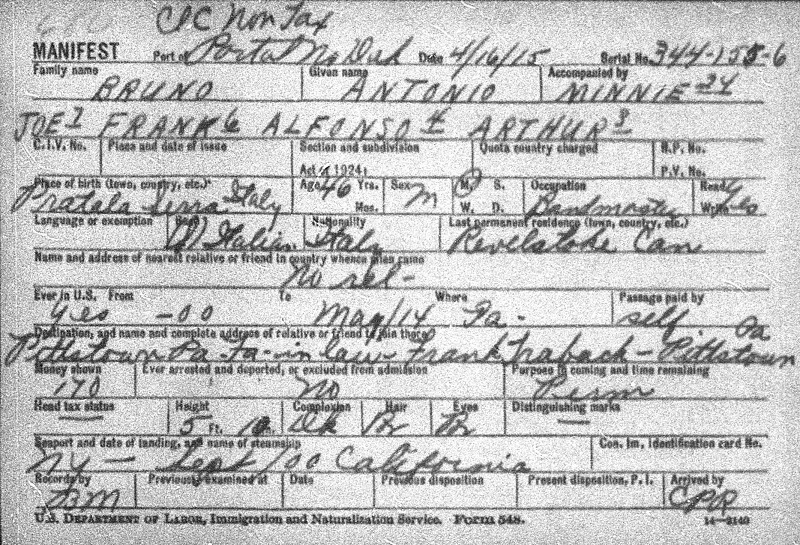 CPC Non Tax
MANIFEST Port of Portal No Dak Date 4/16/15 Serial No. 344-155-6
Family name Given name Accompanied by
BRUNO ANTONIO MINNIE 34
JOE 7 FRANK 6 ALFONSO 4 ARTHUR 3
C.I.V. No. Place and date of issue Section and subdivision Quota country charged R.P. No.
Act of 1924, P.V. No.
Place of birth (town, country, etc.) Age 46 Yrs. Sex M. S. Occupation Read yes
Pratola Serra Italy Mos. M W. D. Bandmaster Write yes
Language or exemption Race Nationality Last permanent residence (town, country, etc.)
Italian Italy Revelstoke Can
Name and address of nearest relative or friend in country whence alien came
No rel-
Ever in U.S. From To Where Passage paid by
yes -00 May/14 Pa. self
Destination, and name and complete address of relative or friend to join there
Pittstown Pa Fa-in law Frank Traback - Pittstown Pa
Money shown Ever arrested and deported, or excluded from admission Purpose in coming and time remaining
170 No Perm
Head tax status Height Complexion Hair Eyes Distinguishing marks
— 5 Ft. 10 In. Dk Br Br —
Seaport and date of landing, and name of steamship Con. Im. Identification card No.
NY - Sept/00 California
Records by Previously examined at Date Previous disposition Present disposition, P. I. Arrived by
BM CPR
U.S. DEPARTMENT OF LABOR, Immigration and Naturalization Service. Form 548. 14—2140